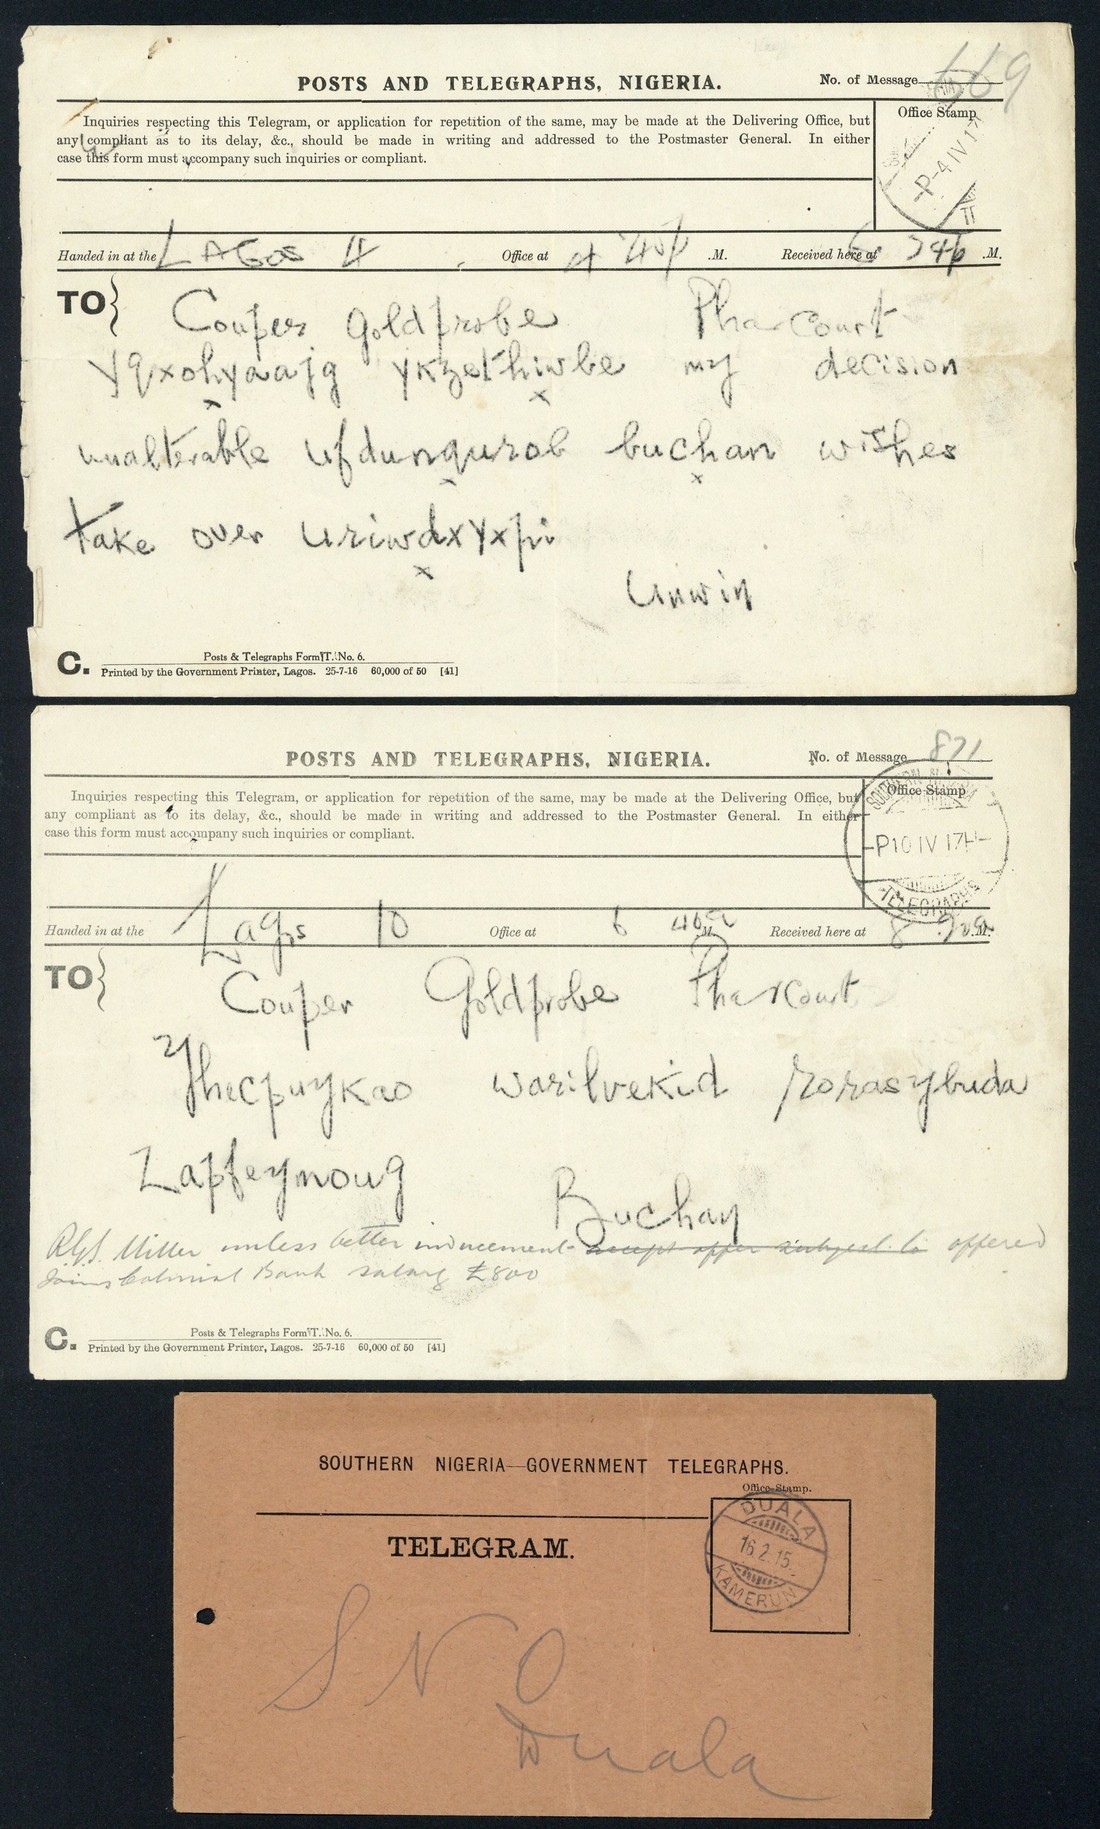 POSTS AND TELEGRAPHS, NIGERIA.
No. of Message 669
Inquiries respecting this Telegram, or application for repetition of the same, may be made at the Delivering Office, but
any compliant as to its delay, &c., should be made in writing and addressed to the Postmaster General. In either
case this form must accompany such inquiries or compliant.
Office Stamp
P-4 IV 17
Handed in at the LAGOS 4 Office at 4 40p .M. Received here at 6 .M.
TO
Couper Goldprobe Pharcourt
yqxohyaajg ykzethiwbe my decision
unalterable ufdunqurob buchan wishes
take over uriwdxyxpi
Unwin
C.
Posts & Telegraphs Form T. No. 6.
Printed by the Government Printer, Lagos. 25-7-16 60,000 of 50 [41]
POSTS AND TELEGRAPHS, NIGERIA.
No. of Message 871
Inquiries respecting this Telegram, or application for repetition of the same, may be made at the Delivering Office, but
any compliant as to its delay, &c., should be made in writing and addressed to the Postmaster General. In either
case this form must accompany such inquiries or compliant.
Office Stamp
SOUTHERN
P10 IV 17
TELEGRAPHS
Handed in at the Lagos 10 Office at 6 40a .M. Received here at 8 .M.
TO
Couper Goldprobe Pharcourt
Yhecpuykao warilvekid rorasybuda
Zapfeynoug
Buchan
R.G.S. Miller unless better inducement accept offer subject to offered
joins Colonial Bank salary £800
C.
Posts & Telegraphs Form T. No. 6.
Printed by the Government Printer, Lagos. 25-7-16 60,000 of 50 [41]
SOUTHERN NIGERIA—GOVERNMENT TELEGRAPHS.
Office Stamp.
TELEGRAM.
DUALA
16.2.15.
KAMERUN
S N O
Duala